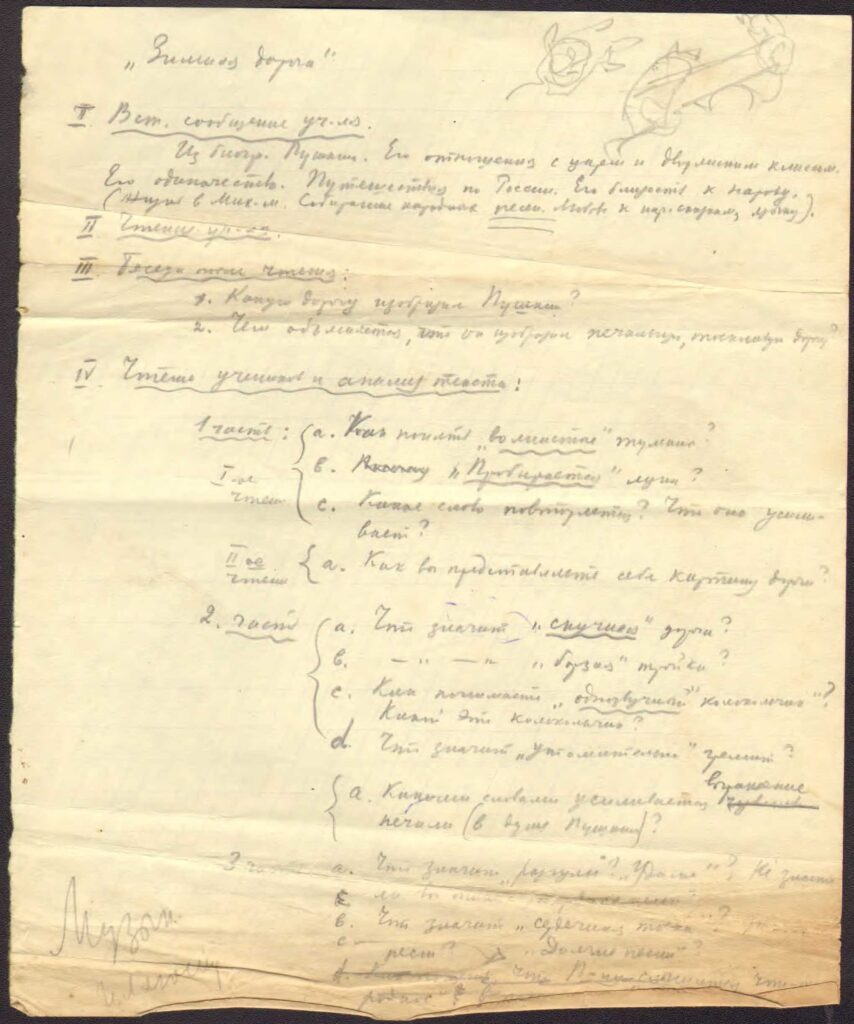 „Зимняя дорога"
I. Вст. сообщение уч-ля.
Из биогр. Пушкина. Его отношения с царем и дворянским классом.
Его одиночество. Путешествия по России. Его близость к народу.
(Няня в Мих-м. Собирание народных песен. Любовь к нар. языку).
II Чтение уч-ля.
III Беседа после чтения:
1. Какую дорогу изобразил Пушкин?
2. Чем объясняется, что он изобразил печальную, тоскливую дорогу?
IV Чтение учеников и анализ текста:
1 часть: a. Как понять „волнистые" туманы?
I-ое чтение
b. „Пробирается" луна?
c. Какое слово повторяется? Что оно усили-
вает?
II ое чтение
a. Как вы представляете себе картину дороги?
2. часть a. Что значит „скучная" дорога?
b. — " — " „борзая" тройка?
c. Как понимаете „однозвучный" колокольчик"?
Какой это колокольчик?
d. Что значит „утомительно" гремит?
a. Какими словами усиливается выражение
печали (в душе Пушкина)?
3 часть a. Что значит „разгулье"? „Удалое"? Не знаете
ли вы
b. Что значит „сердечная тоска"?
c песни? „Долгие песни"?
d. Что
родное"